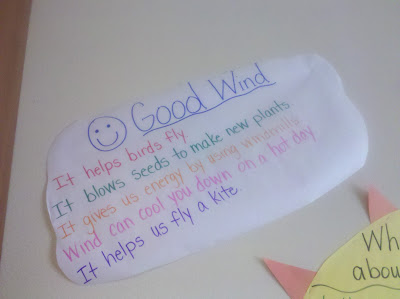 Good Wind
It helps birds fly.
It blows seeds to make new plants.
It gives us energy by using windmills.
Wind can cool you down on a hot day.
It helps us fly a kite.
Wh
abou